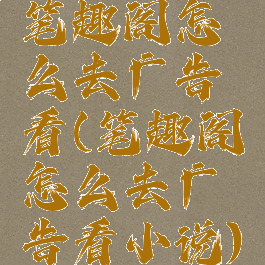 笔趣阁怎
么去广告
看(笔趣阁
怎么去广
告看小说)